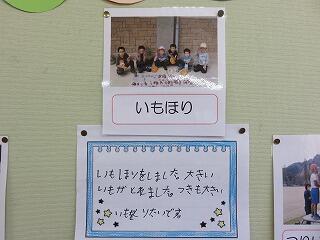 いもほり
いもほりをしました。大きい
いもがとれました。つぎも大きい
いも
りたいです